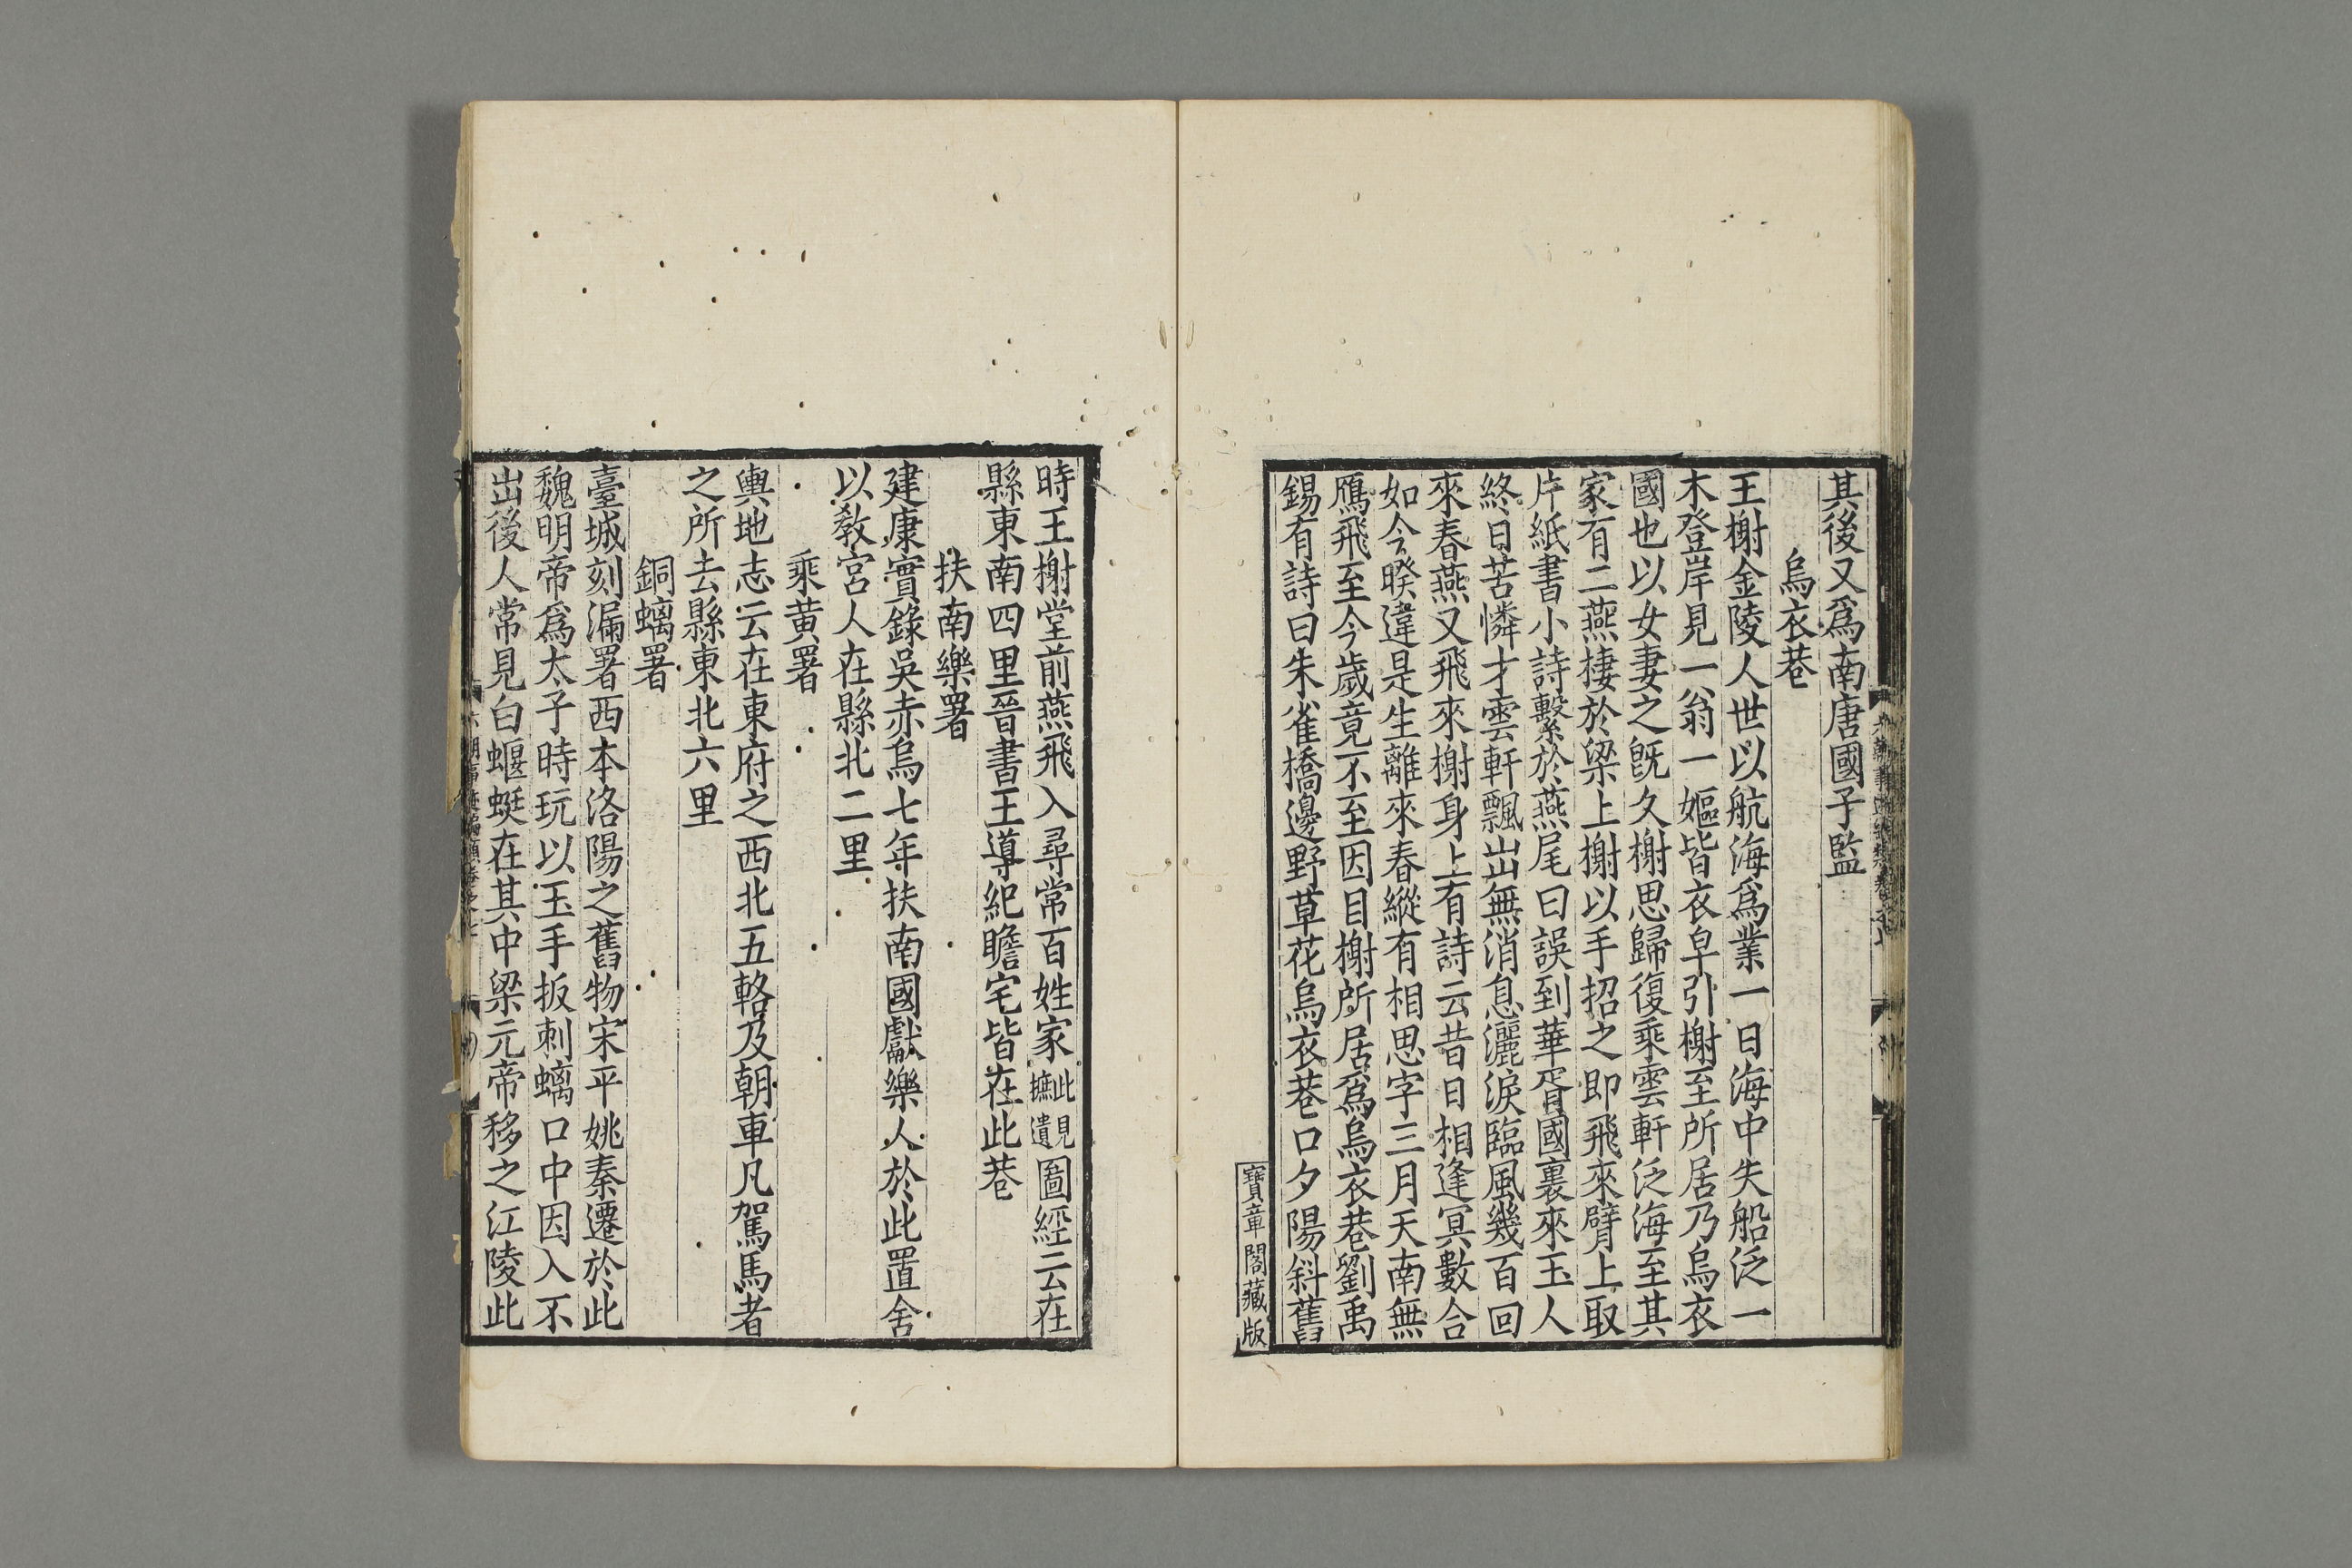 其後又爲南唐國子監
烏衣巷
王榭金陵人世以航海爲業一日海中失船泛一
木登岸見一翁一嫗皆衣皁引榭至所居乃烏衣
國也以女妻之旣久榭思歸復乘雲軒泛海至其
家有二燕棲於梁上榭以手招之即飛來臂上取
片紙書小詩繫於燕尾曰誤到華胥國裏來玉人
終日苦憐才雲軒飄出無消息灑淚臨風幾百回
來春燕又飛來榭身上有詩云昔日相逢冥數合
如今暌違是生離來春縱有相思字三月天南無
鴈飛至今歲竟不至因目榭所居爲烏衣巷劉禹
錫有詩曰朱雀橋邊野草花烏衣巷口夕陽斜舊
寶章閣藏版
時王榭堂前燕飛入尋常百姓家此見摭遺圖經云在
縣東南四里晉書王導紀瞻宅皆在此巷
扶南樂署
建康實錄吳赤烏七年扶南國獻樂人於此置舍
以敎宮人在縣北二里
乘黄署
輿地志云在東府之西北五輅及朝車凡駕馬者
之所去縣東北六里
銅螭署
臺城刻漏署西本洛陽之舊物宋平姚秦遷於此
魏明帝爲太子時玩以玉手扳刺螭口中因入不
出後人常見白蝘蜓在其中梁元帝移之江陵此